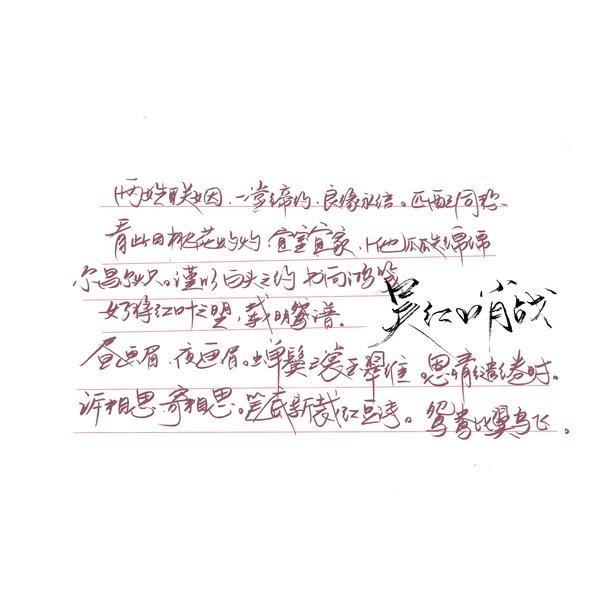 两姓联姻、一堂缔约、良缘永结。匹配同称、
看此日桃花灼灼、宜室宜家、卜他瓜瓞绵绵
尔昌尔炽。谨以白头之约书向鸿笺
好将红叶之盟，载明鸳谱。
吴红哨战
昼画眉、夜画眉。蝉鬓之裳玉翠维。思情缱绻时。
诉相思、寄相思。笔底新裁红豆诗。鸳鸯比翼鸟飞。